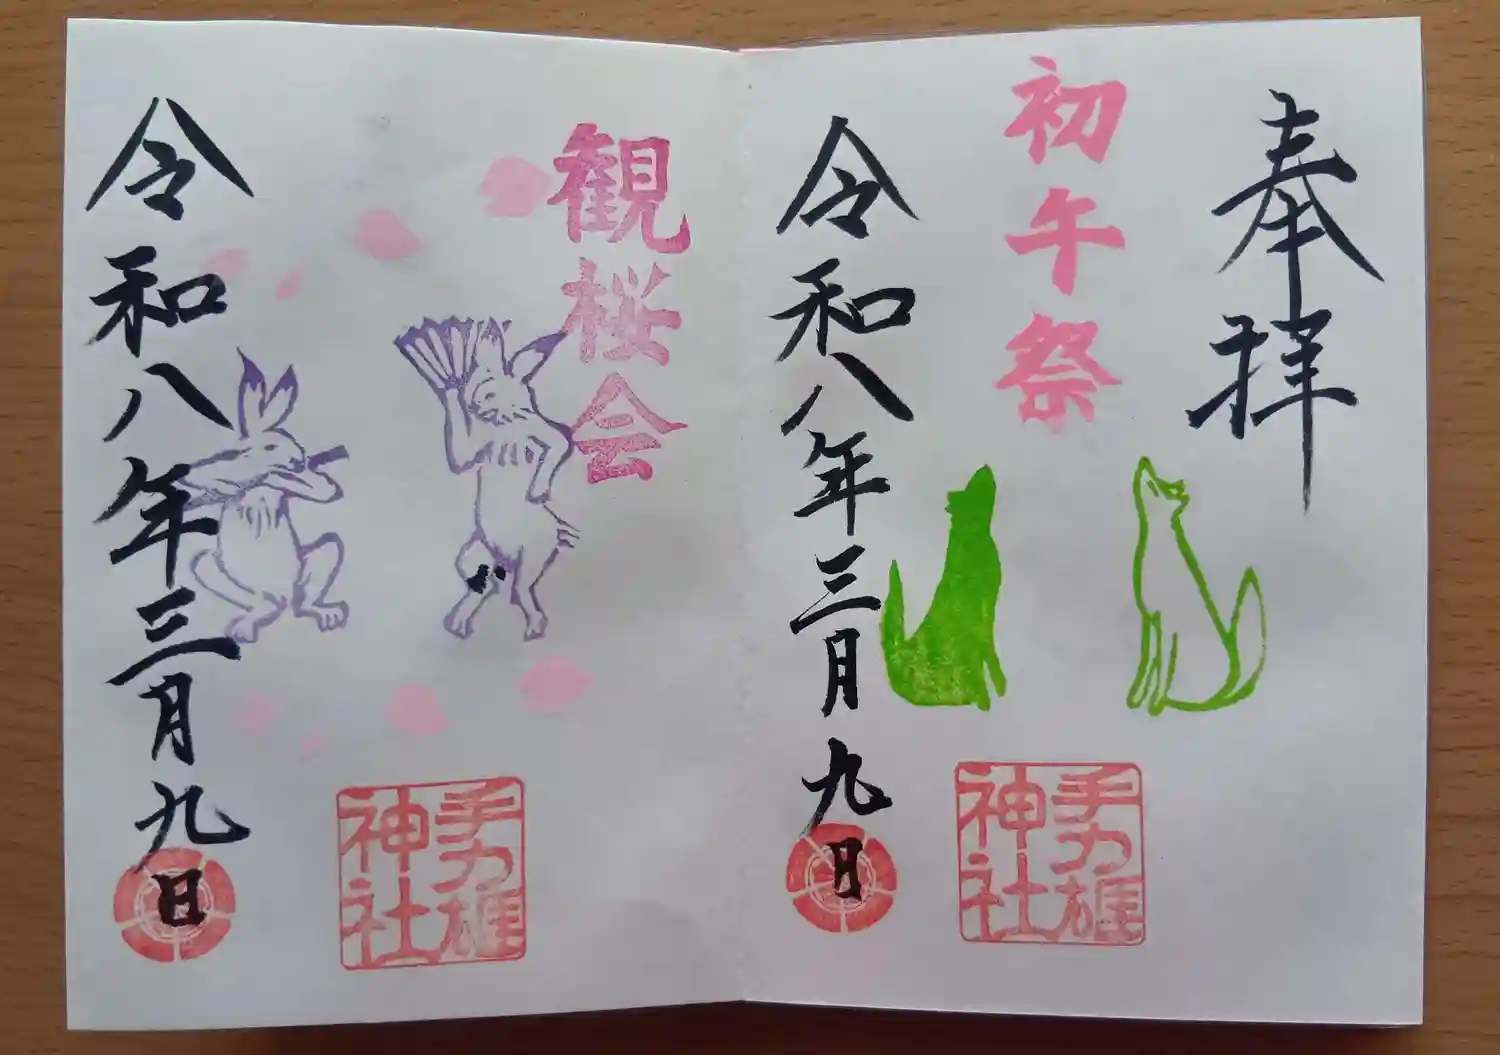 奉拝
初午祭
令和八年三月九日
手力雄
神社
観桜会
令和八年三月九日
手力雄
神社